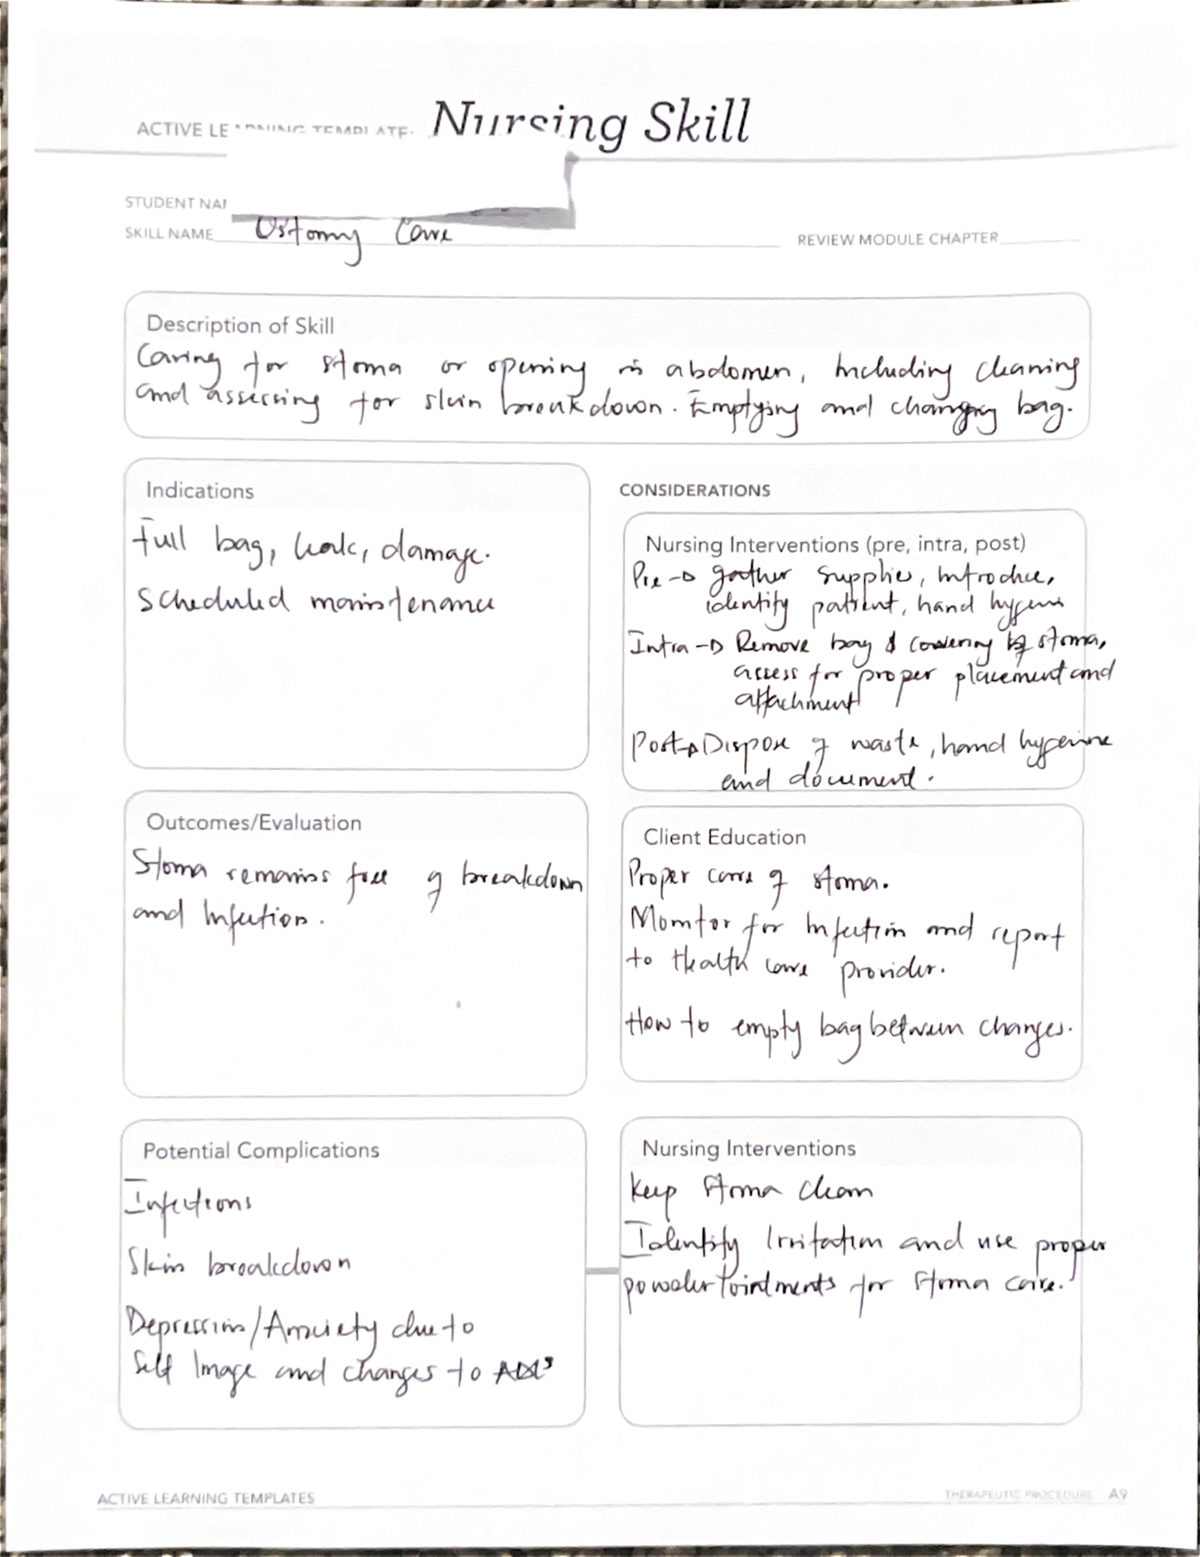 ACTIVE LEARNING TEMPLATE: Nursing Skill
STUDENT NAM
SKILL NAME Ostomy Care
REVIEW MODULE CHAPTER
Description of Skill
Caring for stoma or opening in abdomen, Including cleaning
and assessing for skin breakdown. Emptying and changing bag.
Indications
Full bag, leak, damage.
Scheduled maintenance
CONSIDERATIONS
Nursing Interventions (pre, intra, post)
Pre → gather supplies, Introduce,
identify patient, hand hygiene
Intra → Remove bag & covering of stoma,
access for proper placement and
attachment
Post → Dispose of waste, hand hygeine
and document.
Outcomes/Evaluation
Stoma remains free of breakdown
and Infection.
Client Education
Proper care of stoma.
Monitor for Infection and report
to Health care provider.
How to empty bag between changes.
Potential Complications
Infections
Skin breakdown
Depression/Anxiety due to
Self Image and changes to ADLs
Nursing Interventions
Keep Stoma clean
Identify Irritation and use proper
powder/ointments for Stoma care.
ACTIVE LEARNING TEMPLATES
THERAPEUTIC PROCEDURE A9